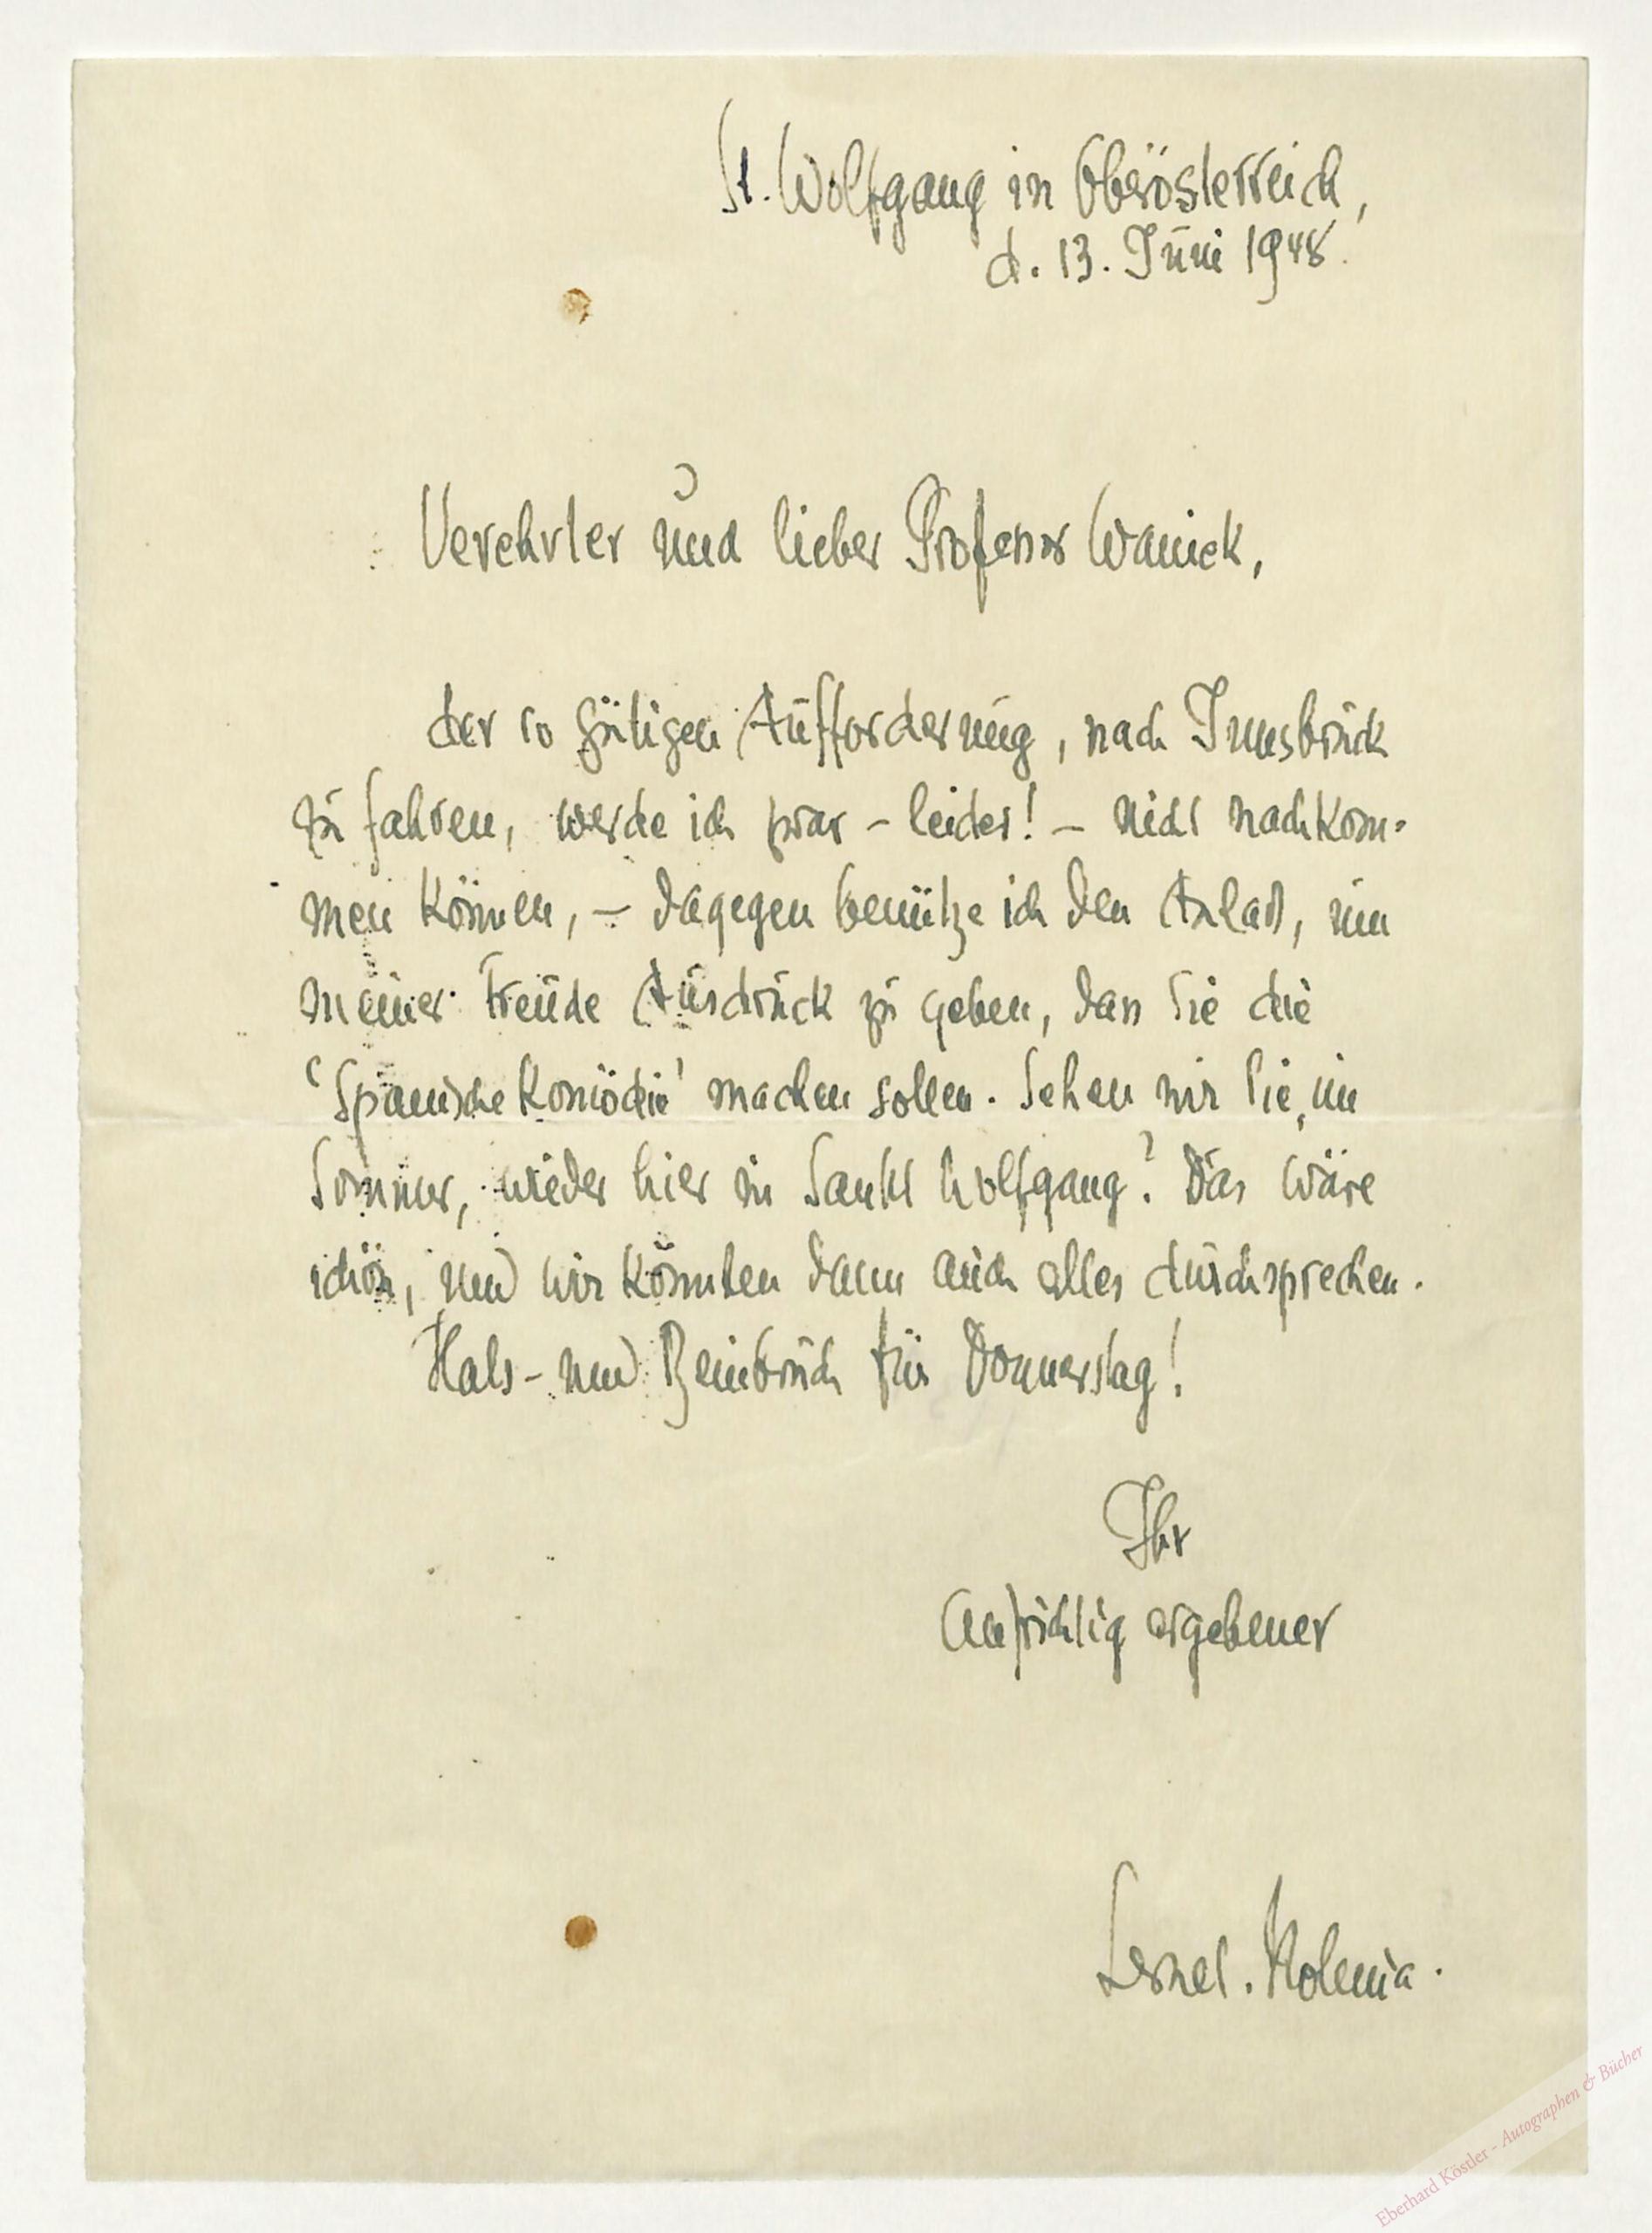 St. Wolfgang in Oberösterreich,
d. 13. Juni 1948.
Verehrter und lieber Professor Wanieck,
der so gütigen Aufforderung, nach Innsbruck
zu fahren, werde ich zwar – leider! – nicht nachkom-
men können, – dagegen benütze ich den Anlaß, um
meiner Freude Ausdruck zu geben, dass Sie die
'Spanische Komödie' machen sollen. Sehen wir Sie, im
Sommer, wieder hier in Sankt Wolfgang? Das wäre
schön, und wir könnten dann auch alles durchsprechen.
Hals- und Beinbruch für Donnerstag!
Ihr
aufrichtig ergebener
Lernet-Holenia.
Eberhard Köstler - Autographen & Bücher